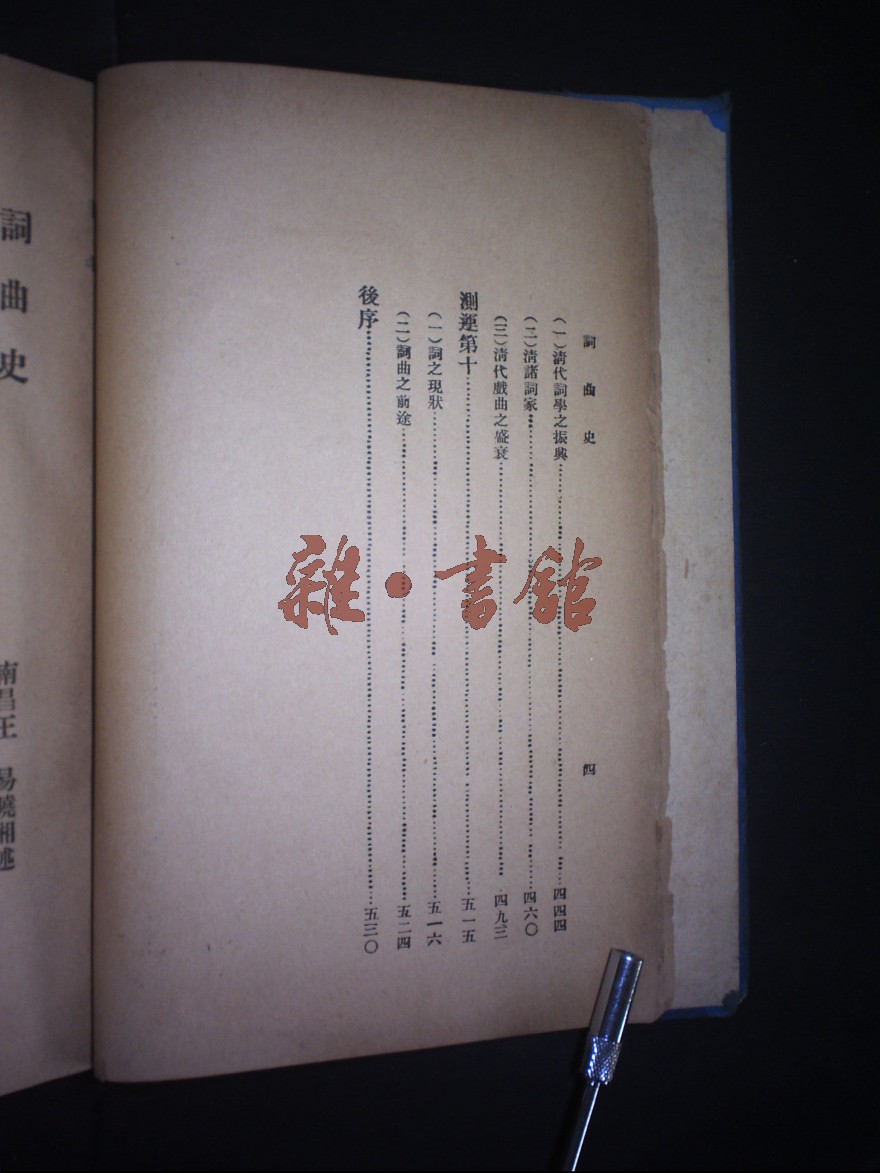 詞曲史
四
(一)清代詞學之振興……四四四
(二)清諸詞家……四六〇
(三)清代戲曲之盛衰……四九三
測運第十……五一五
(一)詞之現狀……五一六
(二)詞曲之前途……五二四
後序……五三〇
雜·書館
詞曲史
南昌王 易曉湘述